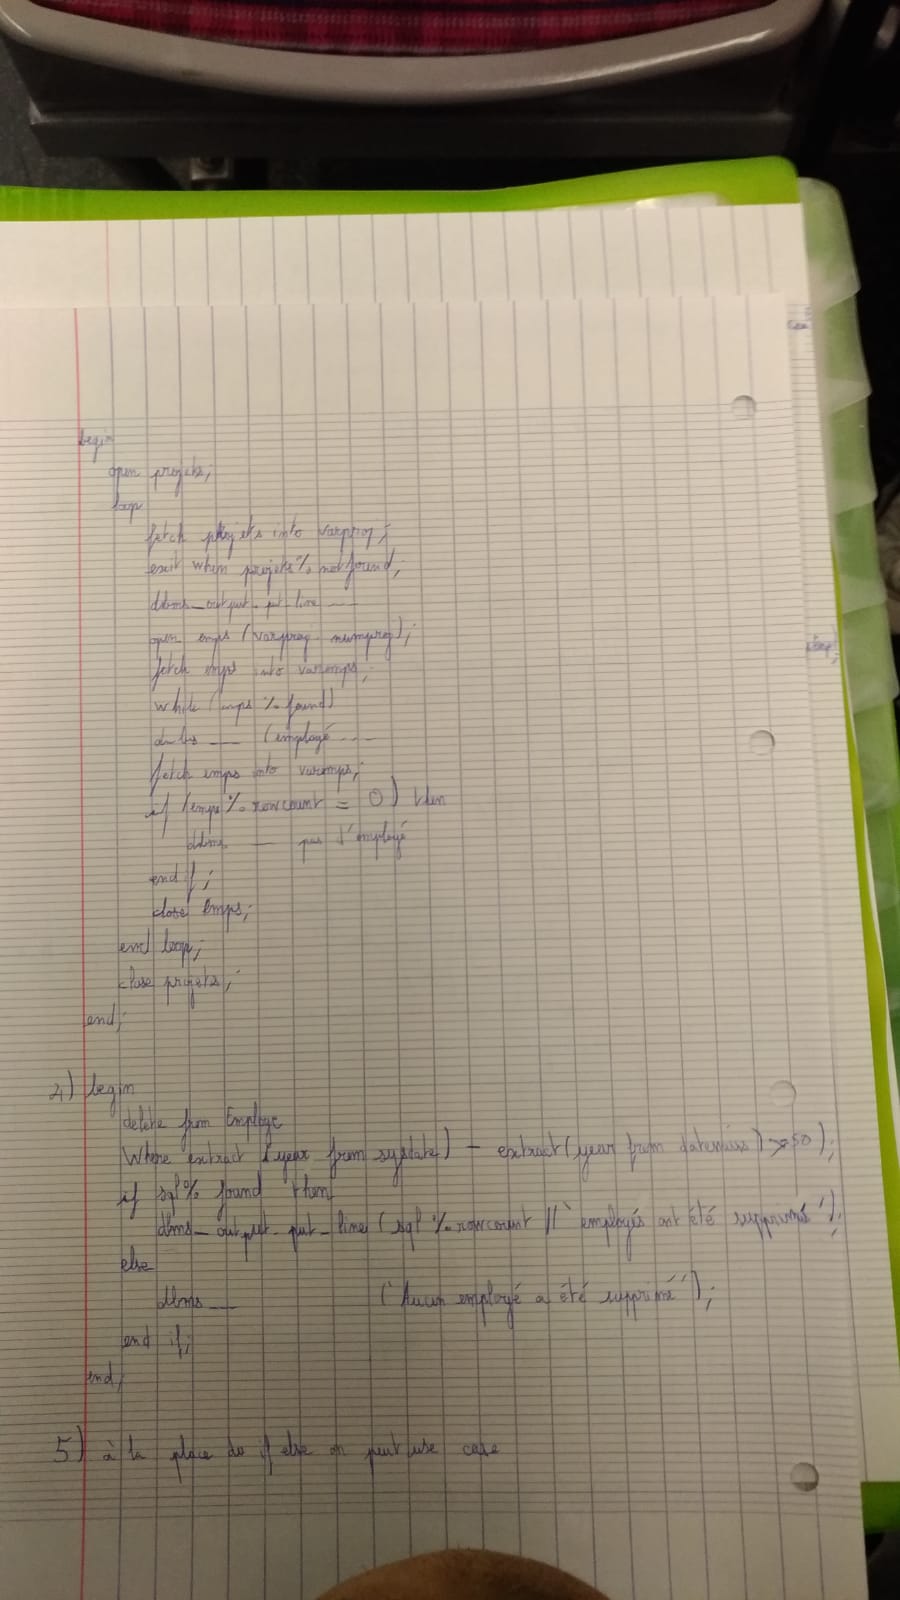 begin
open projets;
loop
fetch projets into varproj;
exit when projets%notfound;
dbms_output.put_line ___
open emps (varproj.numproj);
fetch emps into varemps;
while (emps %found)
___ (employé ---
fetch emps into varemps;
if (emps%rowcount = 0) then
dbms ___ pas d'employé
end if;
close emps;
end loop;
close projets;
end;
4) begin
delete from Employe
Where extract (year from sysdate) - extract(year from datenaiss) > 50);
if sql% found then
dbms_output.put_line (sql %rowcount || 'employés ont été supprimé');
else
dbms ___ ('Aucun employé a été supprimé');
end if;
end;
5) à la place du if else on peut use case